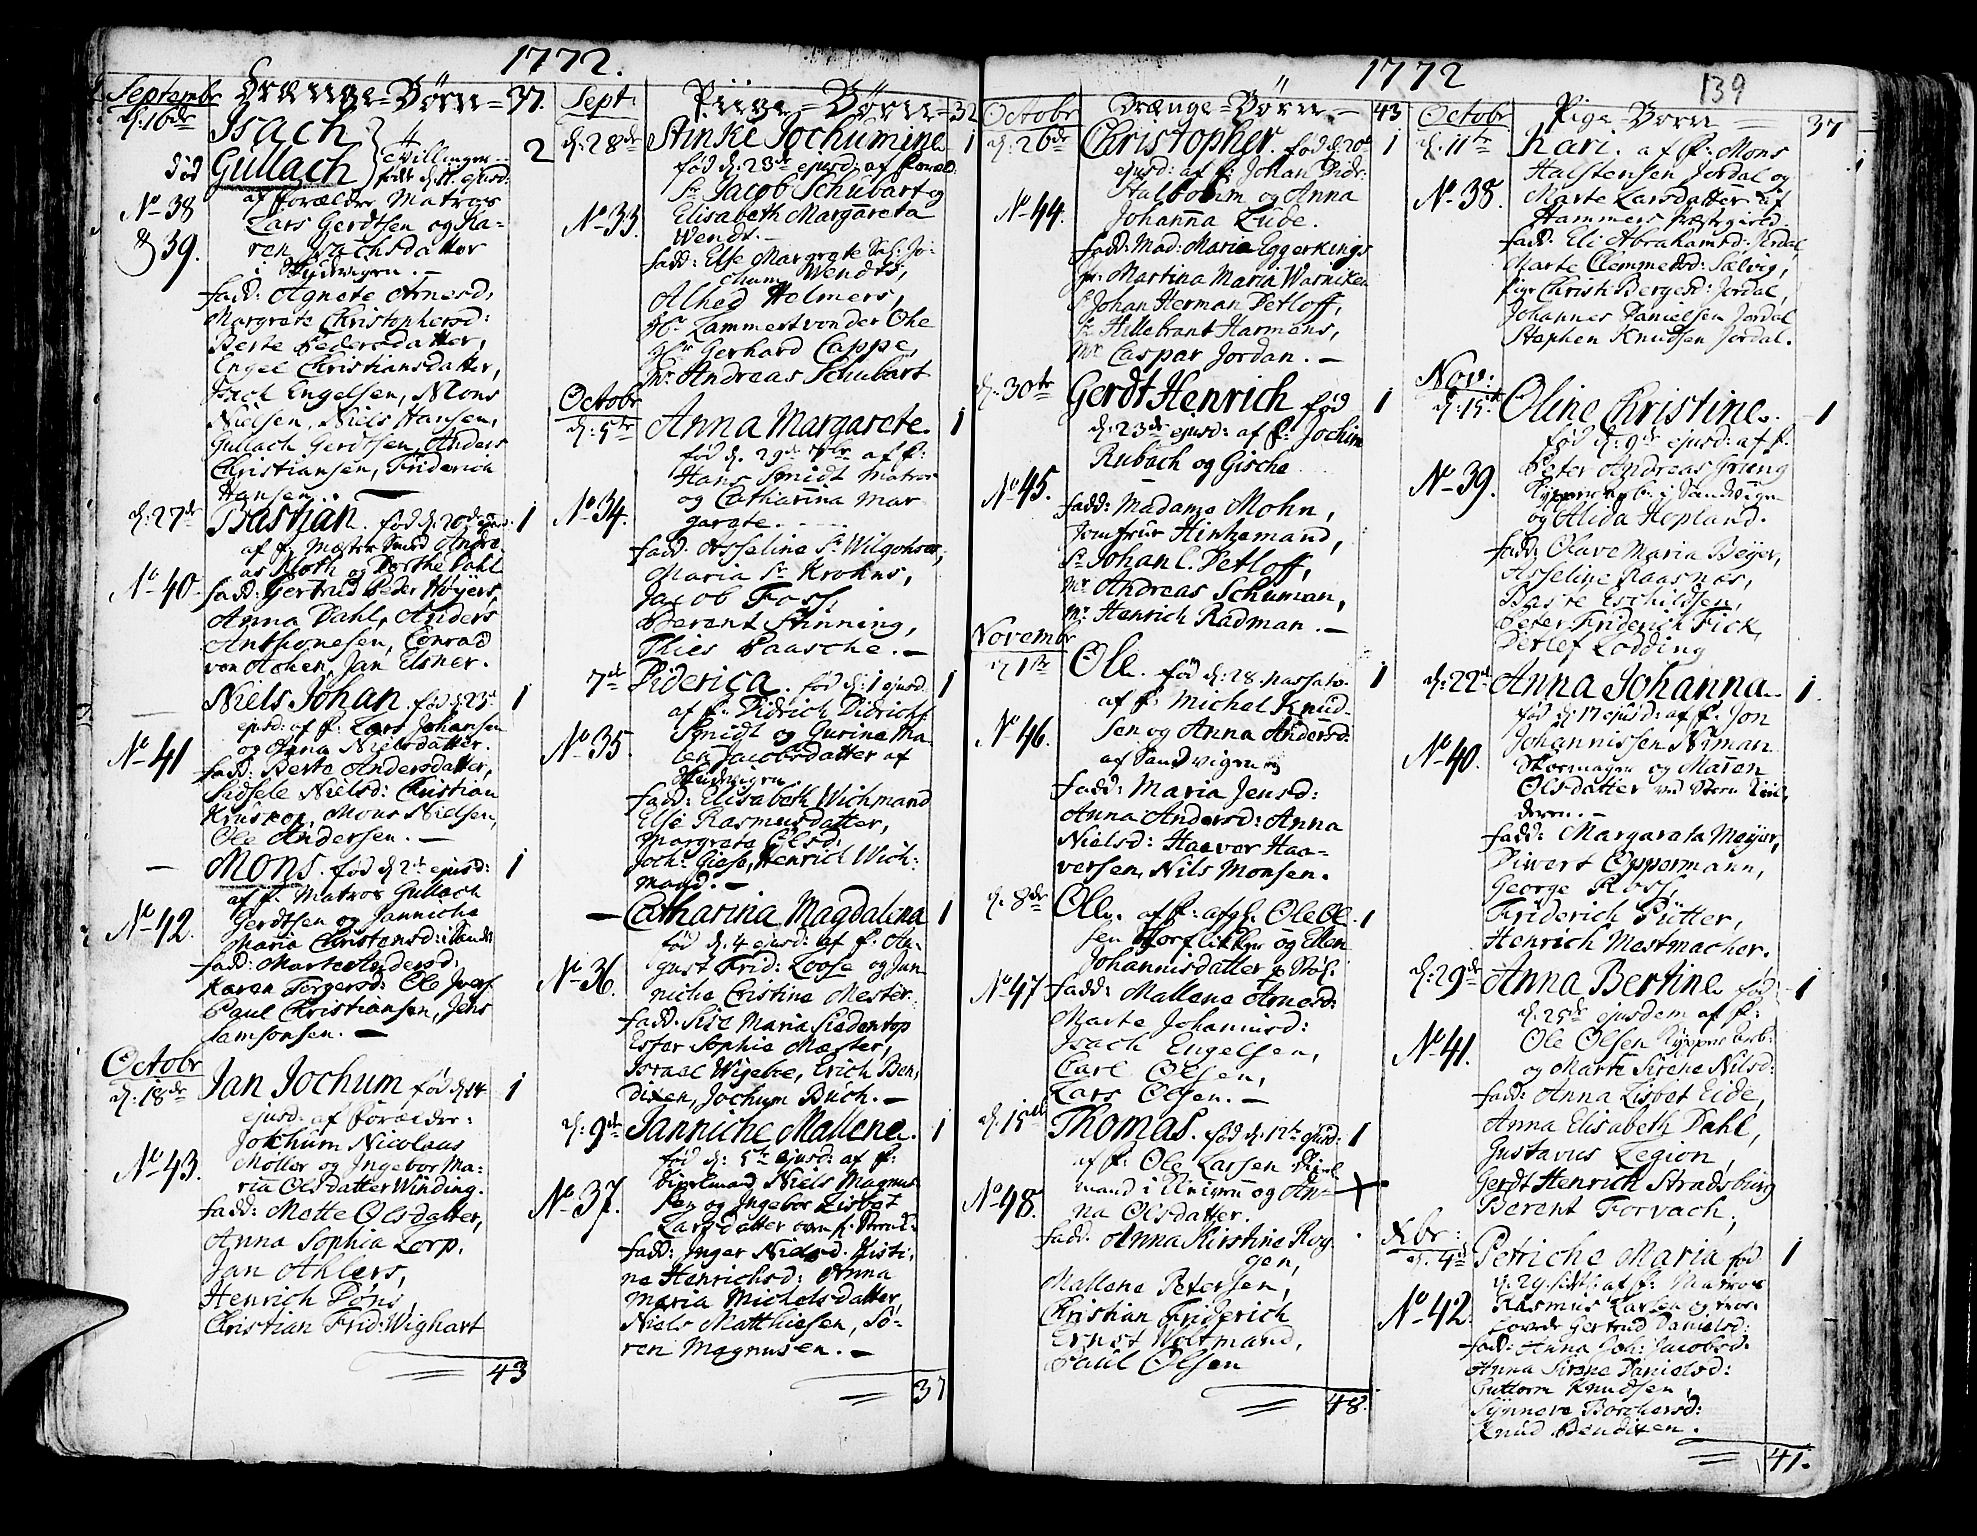 1772.
Septembr Drænge-Börn= 37.
d: 16de Isach
død Gullach } Tvillinger 2
født d: 11. ejusd:
No 38 af Forældre Matros
& 39. Lars Gerdtsen og Ka-
ren Isachsdatter
i Sandvigen. —
fadd: Agnete Arnesd,
Margrete Christophersd:
Berte Pedersdatter,
Engel Christiansdatter,
Isach Engelsen, Mons
Nielsen, Niels Hansen,
Gullach Gerdtsen, Anders
Christiansen, Friderich
Hansen. —
d: 27de Bastian. fød d: 20de ejusd: 1
af f. Mæster Smed Andre-
as Kloth og Dorthe Dahl
No 40. fadd: Gertrud Peder Høyers,
Anna Dahl, Anders
Anthonesen, Conrad
von Achen, Jan Elsner.
Niels Johan. fød d: 23d 1
ejusd: af f. Lars Johansen
og Anna Nielsdatter.
No 41 fadd: Berte Andersdatter,
Sidsele Nielsd: Christian
Kruskop, Mons Nielsen,
Ole Andersen. —
— Mons. fød d: 2de ejusd: 1
af f. Matros Gullach
Gerdtsen og Janniche
No 42. Maria Christensd: i Sandv:
fadd: Marte Andersd:
Karen Torgersd: Ole Ivers:
Paul Christiansen, Jens
Samsonsen. —
Octobr
d: 18de Jan Jochum fød d: 14 1
ejusd: af Forældre:
Jochum Nicolaus
No 43. Møller og Ingebor Ma-
ria Olsdatter Winding.
fadd: Mette Olsdatter,
Anna Sophia Lorp,
Jan Ahlers,
Henrich Döns
Christian Frid: Wighart
43
Sept: Piige-Börn- 32
d: 28de Stinke Jochumine 1
fød d: 23de ejusd: af Foræld:
Sr Jacob Schubart og
No 33. Elisabeth Margareta
Wendt. —
fadd: Else Margrete Sal: Jo-
chum Wendts,
Alhed Holmers,
Hr Lammert von der Ohe
Hr Gerhard Cappe,
Mr Andreas Schubart
Octobr
d: 5te Anna Margarete. 1
fød d. 29de 7br af f:
Hans Smidt Matros
No 34. og Catharina Mar
garete. —
fadd: Asseline Sr Wilgohses,
Maria Sr Krohns,
Jacob Foss,
Berent Stinning,
Thies Paasche. —
7de Diderica. fød d: 1 ejusd. 1
af f. Didrich Didrichs:
Smidt og Gurine Ma-
No 35. len Jacobsdatter af
Sandvigen
fadd: Elisabeth Wichmand
Else Rasmusdatter,
Margrete Elsd:
Joch: Giese, Henrich Wich-
mand. —
— Catharina Magdalina 1
fød d. 4 ejusd: af f. Au-
gust Frid: Loose og Jan
No 36. niche Cristine Mester.
fadd: Sise Maria Siedentop
Ester Sophie Mester,
Israel Wijebe, Erich Ben
dixen, Jochum Buch. —
d: 9de Janniche Mallene. 1
fød d: 5te ejusd: af f:
Niels Magnus
No 37. sen og Ingebor Lisbet
Larsdatter
fadd: Inger Nielsd. Kisti-
ne Henrichsd: Anna
Maria Michelsdatter
Niels Matthiesen, Sö-
ren Magnusen. —
37
1772 139
Octobr Drænge-Börn- 43
d: 26de Christopher. fød d: 20d 1
ejusd: af f: Johan Didr:
Stalbohm og Anna
No 44. Johanna Lube.
fadd: Mad: Maria Eggerkings
Jr: Martina Maria Warniken
Sr Johan Herman Detloff,
Sr Hillebrant Harmens,
Mr Caspar Jordan. —
d: 30te Gerdt Henrich fød 1
d: 23de ejusd: af f: Jochim
Rubach og Gische
No 45. fadd: Madame Mohn,
Jomfrue Hinkemand,
Sr Johan C. Detloff,
Mr Andreas Schuman,
Mr Henrich Radman. —
Novembr
d: 1ste Ole. fød d: 28. passato. 1
af f: Michel Knud-
No 46. sen og Anna Andersd:
af Sandvigen
fadd: Maria Jensd:
Anna Andersd: Anna
Nielsd: Haaver Haa-
versen, Nils Monsen.
d: 8de Ole. af f: afgl. Ole Ol- 1
sen og Ellen
Johannisdatter
No 47 fadd: Mallene Arnesd:
Marte Johannisd:
Isach Engelsen,
Carl Olsen,
Lars Olsen. —
d: 15de Thomas. fød d: 12te ejusd: 1
af f: Ole Larsen
mand i og An-
No 48. na Olsdatter.
fadd: Anna Kirstine Rog-
gen,
Mallene Petersen,
Christian Friderich
Ernst Woltmand,
Paul Olsen
48.
Octobr Pige-Börn — 37
d: 11te Kari. af f: Mons 1
Halstensen Jordal og
No 38. Marte Larsdatter af
Hammers Præstegield.
fadd: Eli Abrahamsd: Jordal,
Marte Clemmetsd: Sælvig,
Pige Christi Bergesd: Jordal,
Johannes Danielsen Jordal
Stephen Knudsen Jordal.
Nov:
d: 15de Oline Christine. 1
fød d: 9de ejusd: af f.
Peter Andreas Grüng
No 39. i Sandvigen
og Alida Hopland.
fadd: Olave Maria Beyer,
Asseline Raasnæs,
Baste Eschildsen,
Peter Friderich Fick,
Detlef Lodding
d: 22de Anna Johanna 1.
fød d: 17 ejusd: af f. Jon
Johannissen Niman
No 40. Skoemager og Maren
Olsdatter
fadd: Margarata Meyer,
Diwert Oppermann,
George Ross,
Friderich Pütter,
Henrich Mestmacher.
d: 29de Anna Bertine fød 1
d. 25de ejusdem af f:
No 41. Ole Olsen
og Marte Sirene Nilsd:
fadd: Anna Lisbet Eide,
Anna Elisabeth Dahl,
Gustavus Legion,
Gerdt Henrich Stradsburg
Berent Forvach,
Xbr:
d. 4de Petriche Maria fød 1
d. 29. af f: Matros
No 42. Rasmus Larsen og
Gertrud Danielsd:
fadd: Anna Joh: Jacobsd:
Anna Sirene Danielsd:
Guttorm Knudsen,
Synneve Borchersd:
Knud Bendixen.
41.